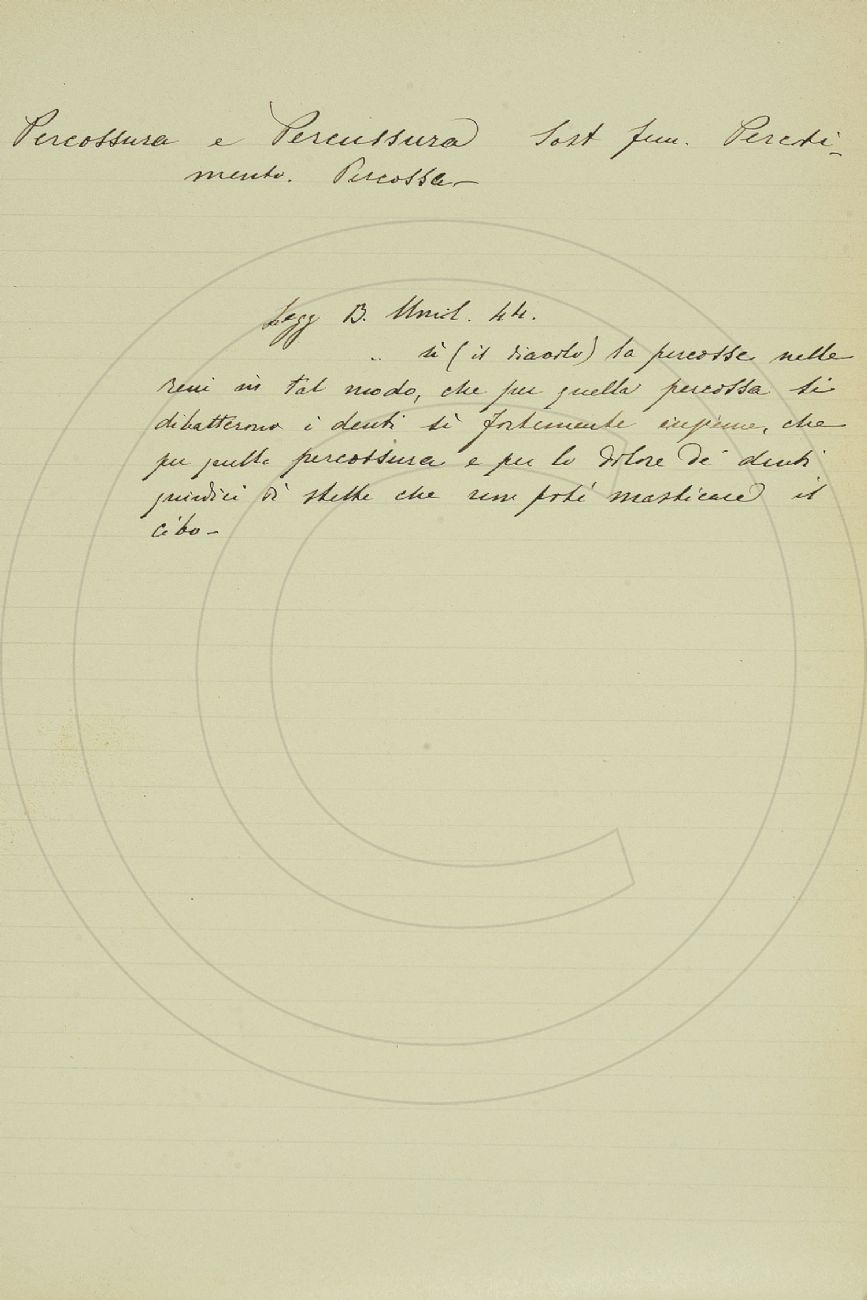 Percossura e Percussura Sost fem. Percoti-
mento. Percossa—
Legg B. Umil. 44.
.. sì (il diavolo) la percosse nelle
reni in tal modo, che per quella percossa si
dibatterono i denti sì fortemente insieme, che
per quella percossura e per lo dolore de' denti
quindici dì stette che non poté masticare il
cibo—